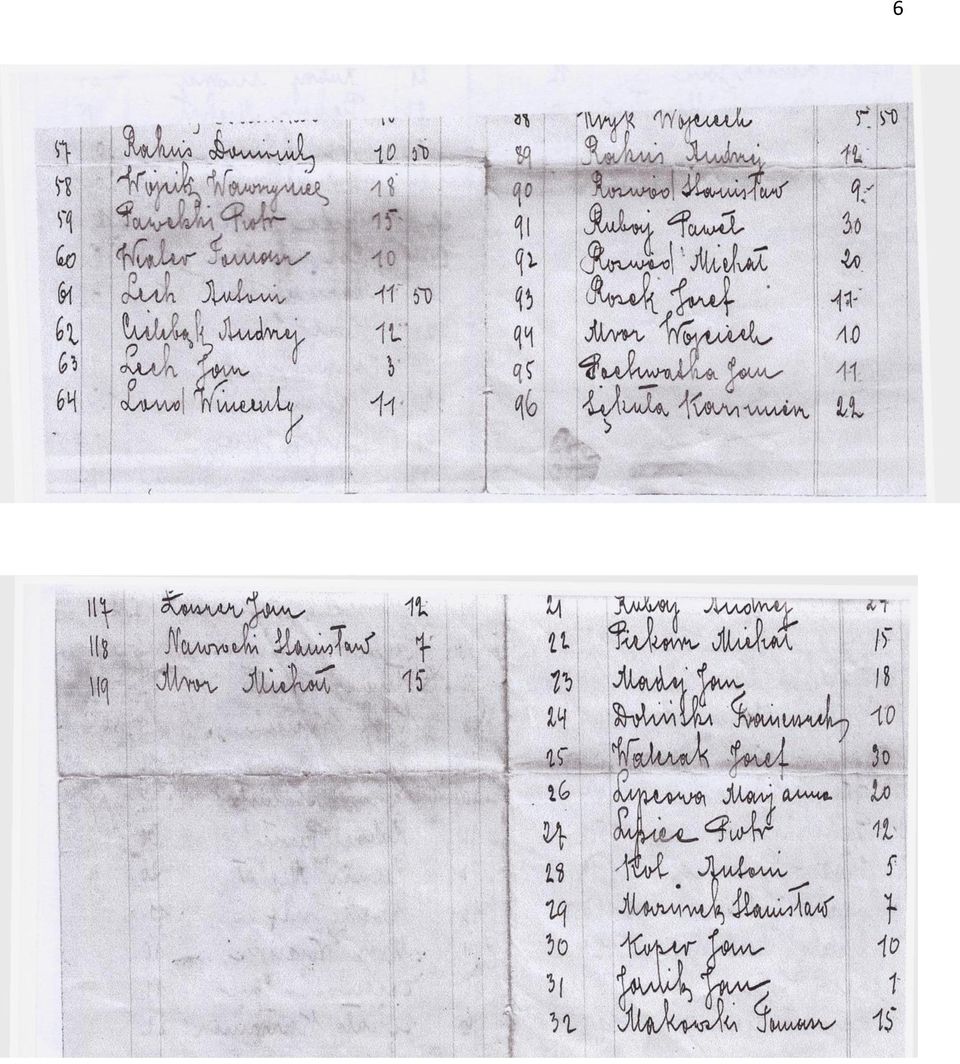 6
57 Rakuś Dominik 10 50
58 Wójcik Wawrzyniec 18
59 Pawelski Piotr 15
60 Wialer Tomasz 10
61 Lech Antoni 11 50
62 Cielebąk Andrzej 12
63 Lech Jan 3
64 Land Wincenty 11
88 Kryk Wojciech 5. 50
89 Rakuś Andrzej 12
90 Rozwód Stanisław 9.-
91 Rubaj Paweł 30
92 Rozwód Michał 20
93 Rosek Józef 17
94 Mroz Wojciech 10
95 Pochwatka Jan 11
96 Sękuła Kazimierz 22
117 Jan 12
118 Nawrocki Stanisław 7
119 Mroz Michał 15
21 Rubaj Andrzej
22 Piekarz Michał 15
23 Madej Jan 18
24 Doliński Franciszek 10
25 Walczak Józef 30
26 Lipcowa Marjanna 20
27 Lipiec Piotr 12
28 Kot Antoni 5
29 Mazurek Stanisław 7
30 Koper Jan 10
31 Jan 1
32 Makowski Tomasz 15